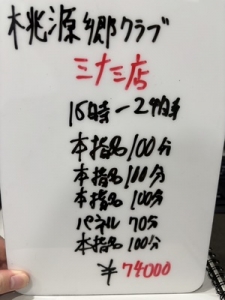 桃源郷クラブ
三十三店
15時-24時
本指名100分
本指名100分
本指名100分
パネル70分
本指名100分
¥74000